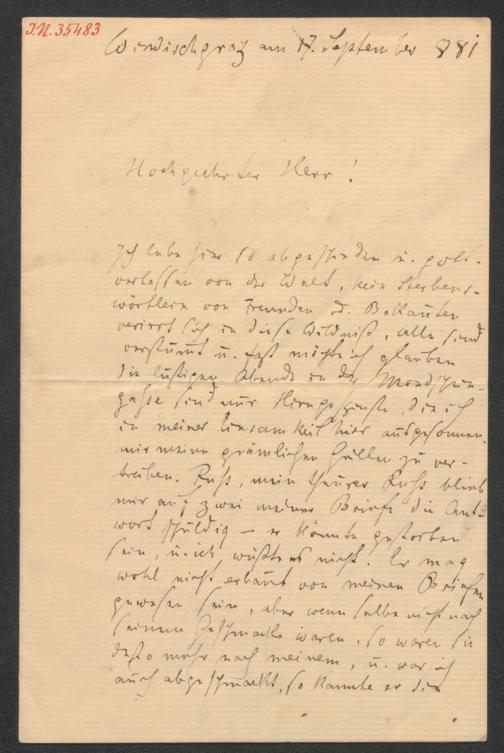 J.N. 35483
Windischgraz am 17. September 881
Hochgeehrter Herr!
Ich lebe hier so abgeschieden u. gott-
verlassen von der Welt, kein Sterbens-
wörtlein von Freunden od. Bekannten
verirrt sich in diese Wildniß, alle sind
verstumt u. fast möchte ich glauben
die lustigen Abende in der Mondschein-
gasse sind nur Hirngespenste, die ich
in meiner Einsamkeit hier ausgesonnen,
mir meine grämlichen Grillen zu ver-
treiben. Ruß, mein theurer Ruß blieb
mir auf zwei meiner Briefe die Ant-
wort schuldig – er könnte gestorben
sein, u. ich wüßte es nicht. Er mag
wohl nicht erbaut von meinen Briefen
gewesen sein, aber wenn selbe nicht nach
seinem Geschmacke waren, so waren sie
desto mehr nach meinem, u. war ich
auch abgeschmackt, so kannte er den